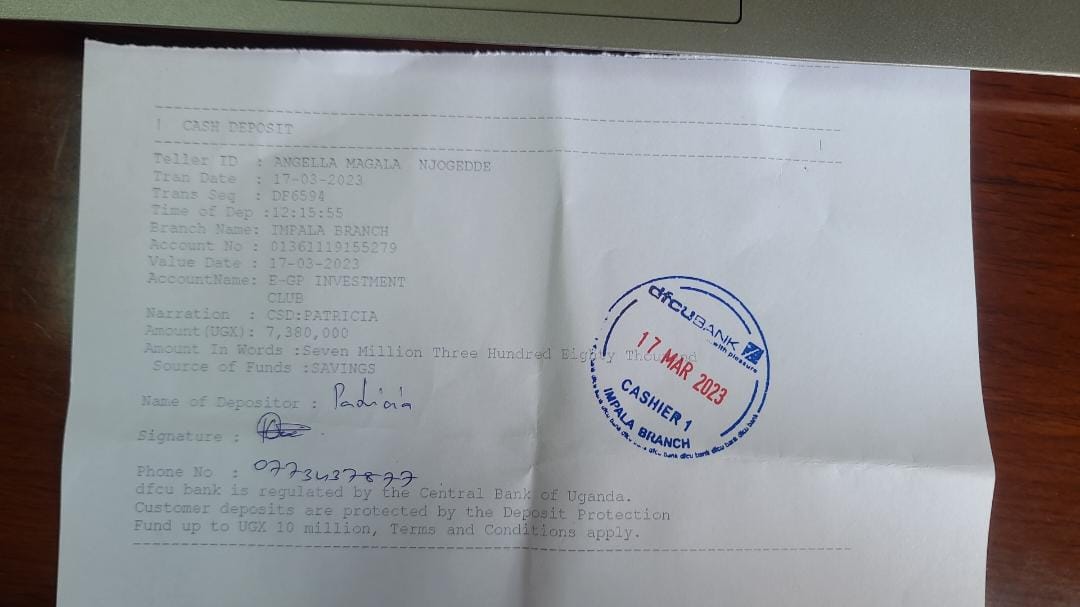 | CASH DEPOSIT
|
Teller ID : ANGELLA MAGALA NJOGEDDE
Tran Date : 17-03-2023
Trans Seq : DF6594
Time of Dep :12:15:55
Branch Name: IMPALA BRANCH
Account No : 01361119155279
Value Date : 17-03-2023
AccountName: E-GP INVESTMENT
CLUB
Narration : CSD:PATRICIA
Amount(UGX): 7,380,000
Amount In Words :Seven Million Three Hundred Eighty Thousand
Source of Funds :SAVINGS
Name of Depositor : Patricia
Signature :
Phone No : 0773437877
dfcu bank is regulated by the Central Bank of Uganda.
Customer deposits are protected by the Deposit Protection
Fund up to UGX 10 million, Terms and Conditions apply.
dfcu BANK
...with pleasure
17 MAR 2023
CASHIER 1
IMPALA BRANCH
dfcu bank dfcu bank dfcu bank dfcu bank dfcu bank